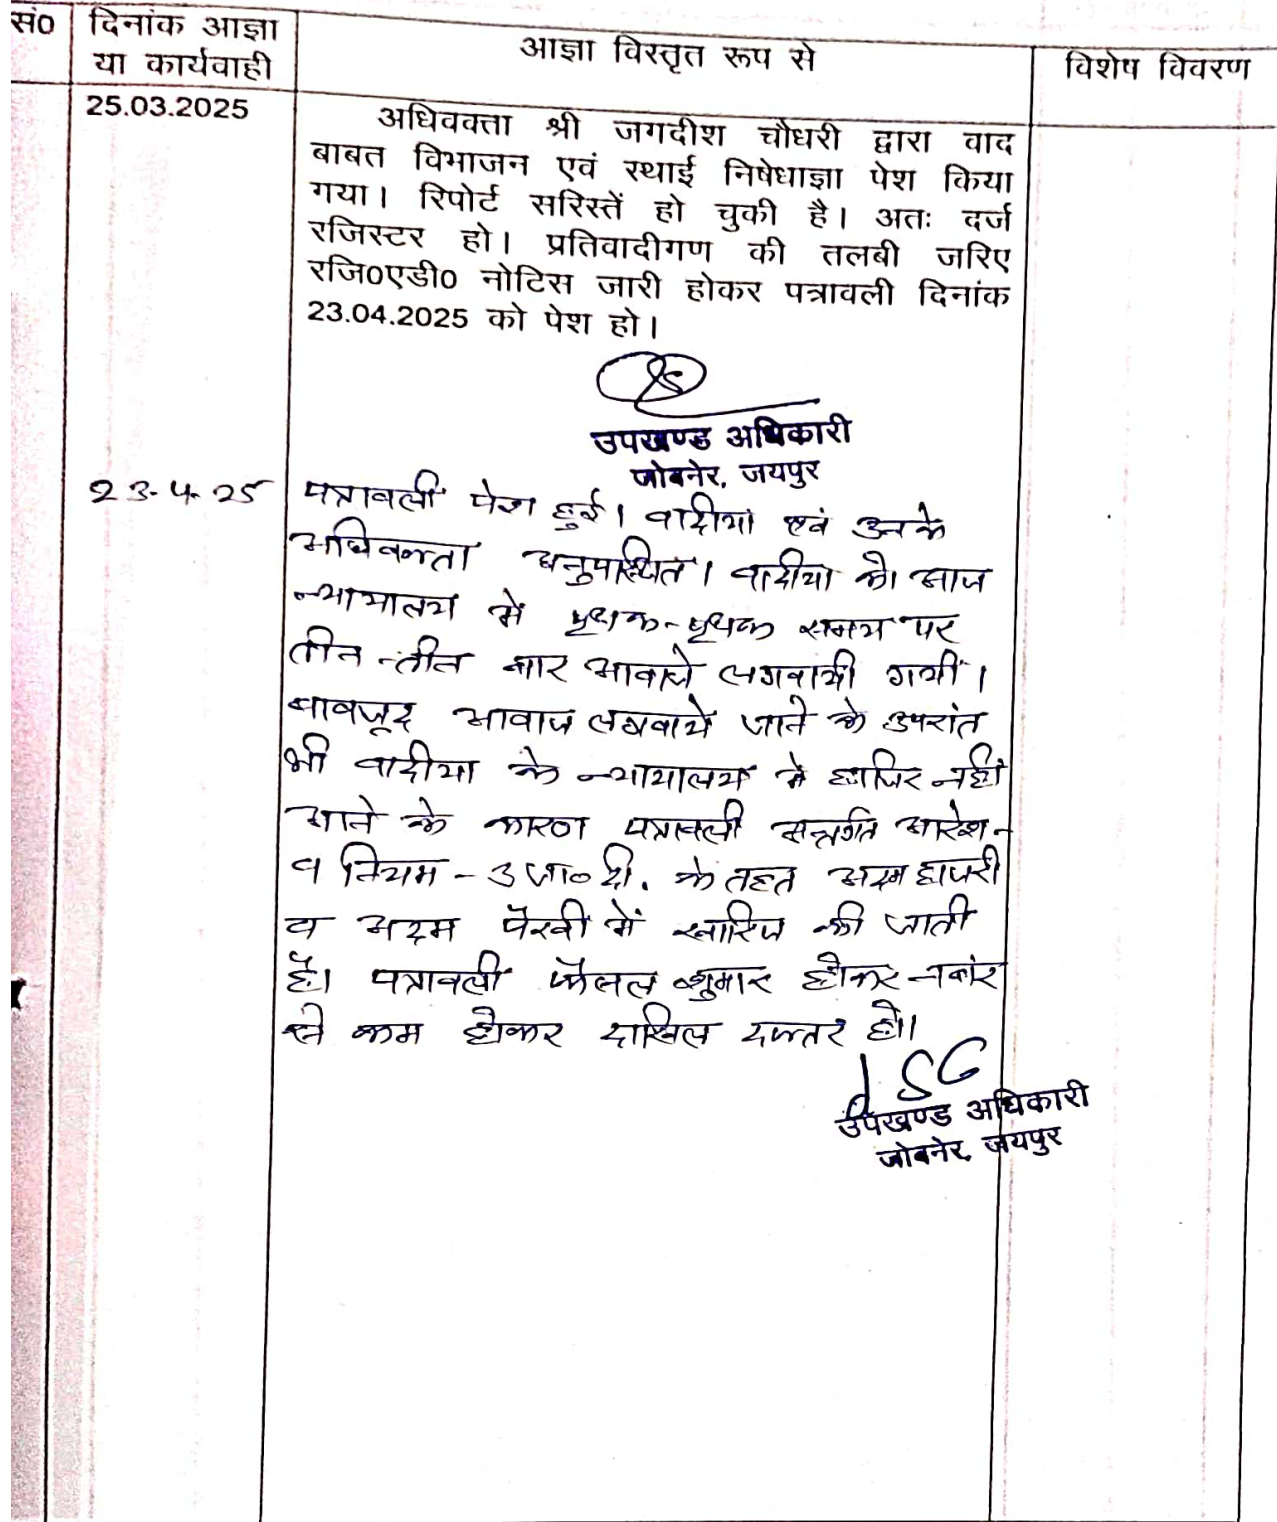 सं0
दिनांक आज्ञा
या कार्यवाही
आज्ञा विस्तृत रूप से
विशेष विवरण
25.03.2025
अधिवक्ता श्री जगदीश चौधरी द्वारा वाद
बाबत विभाजन एवं स्थाई निषेधाज्ञा पेश किया
गया। रिपोर्ट सरिस्तें हो चुकी है। अतः दर्ज
रजिस्टर हो। प्रतिवादीगण की तलबी जरिए
रजि0एडी0 नोटिस जारी होकर पत्रावली दिनांक
23.04.2025 को पेश हो।
उपखण्ड अधिकारी
जोबनेर, जयपुर
23.4.25
पत्रावली पेश हुई। वादीया एवं उनके
अधिवक्ता अनुपस्थित। वादीया को आज
न्यायालय में पृथक-पृथक समय पर
तीन-तीन बार आवाजे लगवायी गयीं।
बावजूद आवाज लगवाये जाने के उपरांत
भी वादीया के न्यायालय में हाजिर नहीं
आने के कारण पत्रावली अन्तर्गत आदेश-
9 नियम-3 जा०दी. के तहत अदम हाजरी
व अदम पैरवी में खारिज की जाती
है। पत्रावली फैसल शुमार होकर नम्बर
से कम होकर दाखिल दफ्तर हो।
उपखण्ड अधिकारी
जोबनेर, जयपुर